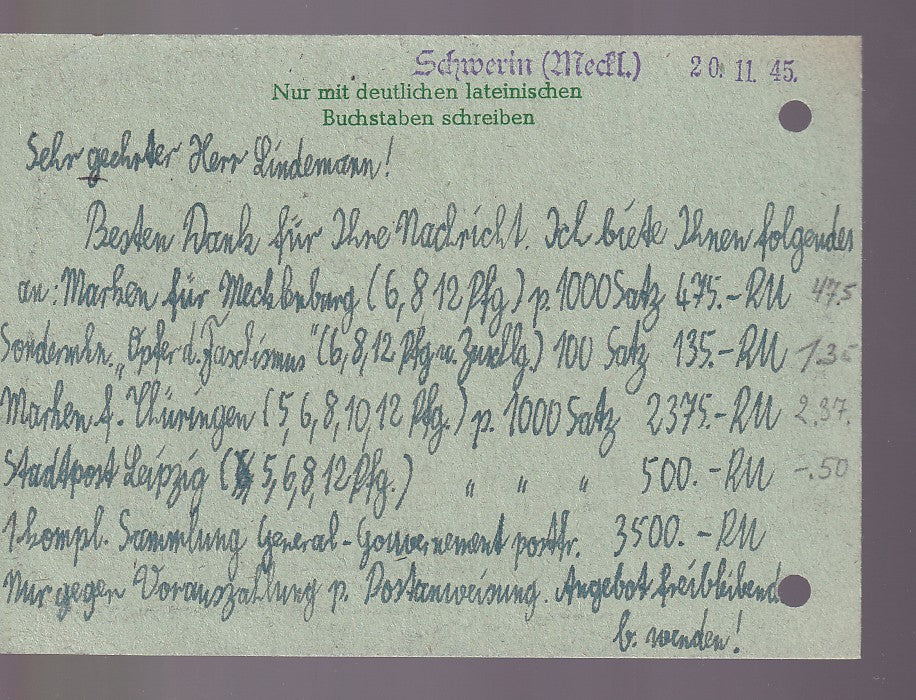 Schwerin (Meckl.) 20. 11. 45.
Nur mit deutlichen lateinischen
Buchstaben schreiben
Sehr geehrter Herr Lindemann!
Besten Dank für Ihre Nachricht. Ich biete Ihnen folgendes
an: Marken für Mecklenburg (6, 8 12 Pfg.) p. 1000 Satz 475.- RM 47.5
Sondermkn. „Opfer d. Faschismus" (6, 8, 12 Pfg u. Zuschlg.) 100 Satz 135.- RM 1.35
Marken f. Thüringen (5, 6, 8, 10, 12 Pfg.) p. 1000 Satz 2375.- RM 2.37.
Stadtpost Leipzig (5, 6, 8, 12 Pfg.) " " " 500.- RM -.50
1 kompl. Sammlung General-Gouvernement postfr. 3500.- RM
Nur gegen Vorauszahlung p. Postanweisung. Angebot freibleibend
b. wenden!